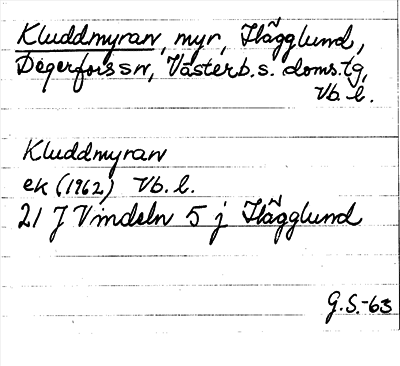 Kluddmyran, myr, Hägglund,
Degerfors sn, Västerb. s. doms.tg,
Vb. l.
Kluddmyran
ek (1962) Vb. l.
21 J Vindeln 5 j Hägglund
G.S.-63